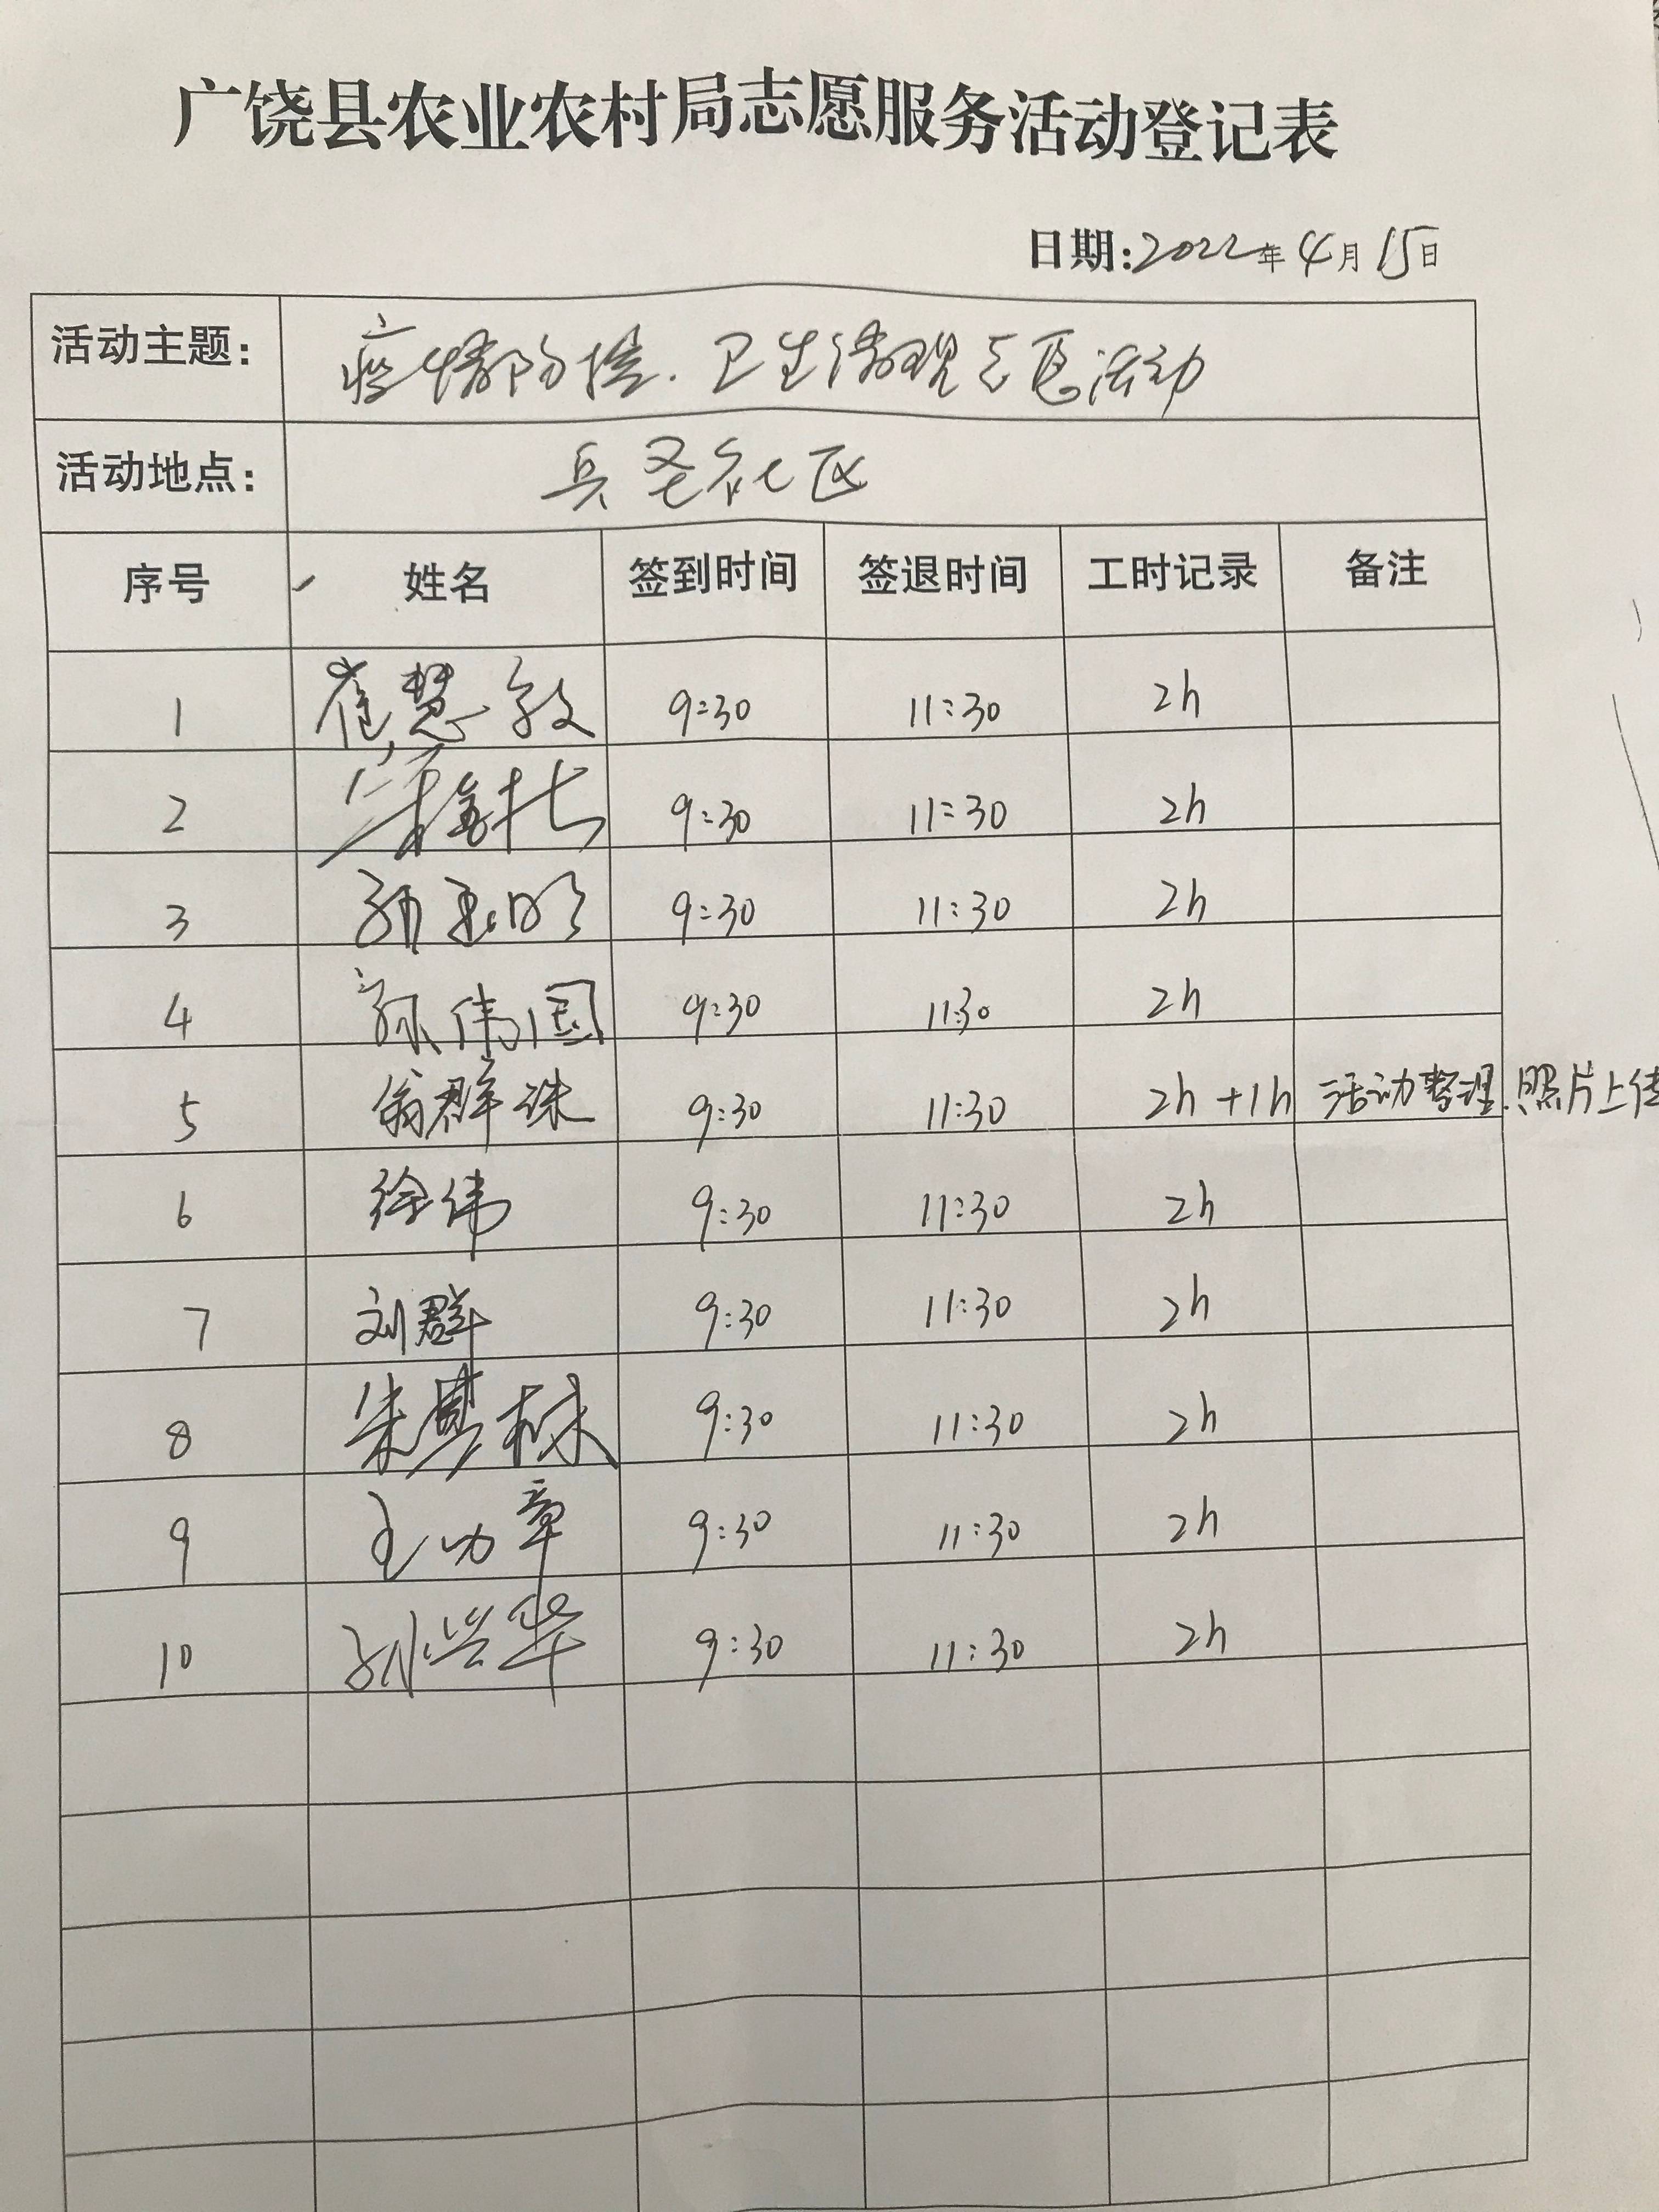 广饶县农业农村局志愿服务活动登记表
日期:2022年4月15日
活动主题: 疫情防控.卫生清理志愿活动
活动地点: 兵圣社区
序号 姓名 签到时间 签退时间 工时记录 备注
1 崔慧敏 9:30 11:30 2h
2 9:30 11:30 2h
3 孙玉明 9:30 11:30 2h
4 孙伟国 9:30 11:30 2h
5 翁群珠 9:30 11:30 2h+1h 活动整理.照片上传
6 徐伟 9:30 11:30 2h
7 刘群 9:30 11:30 2h
8 朱 林 9:30 11:30 2h
9 王功章 9:30 11:30 2h
10 孙兴华 9:30 11:30 2h